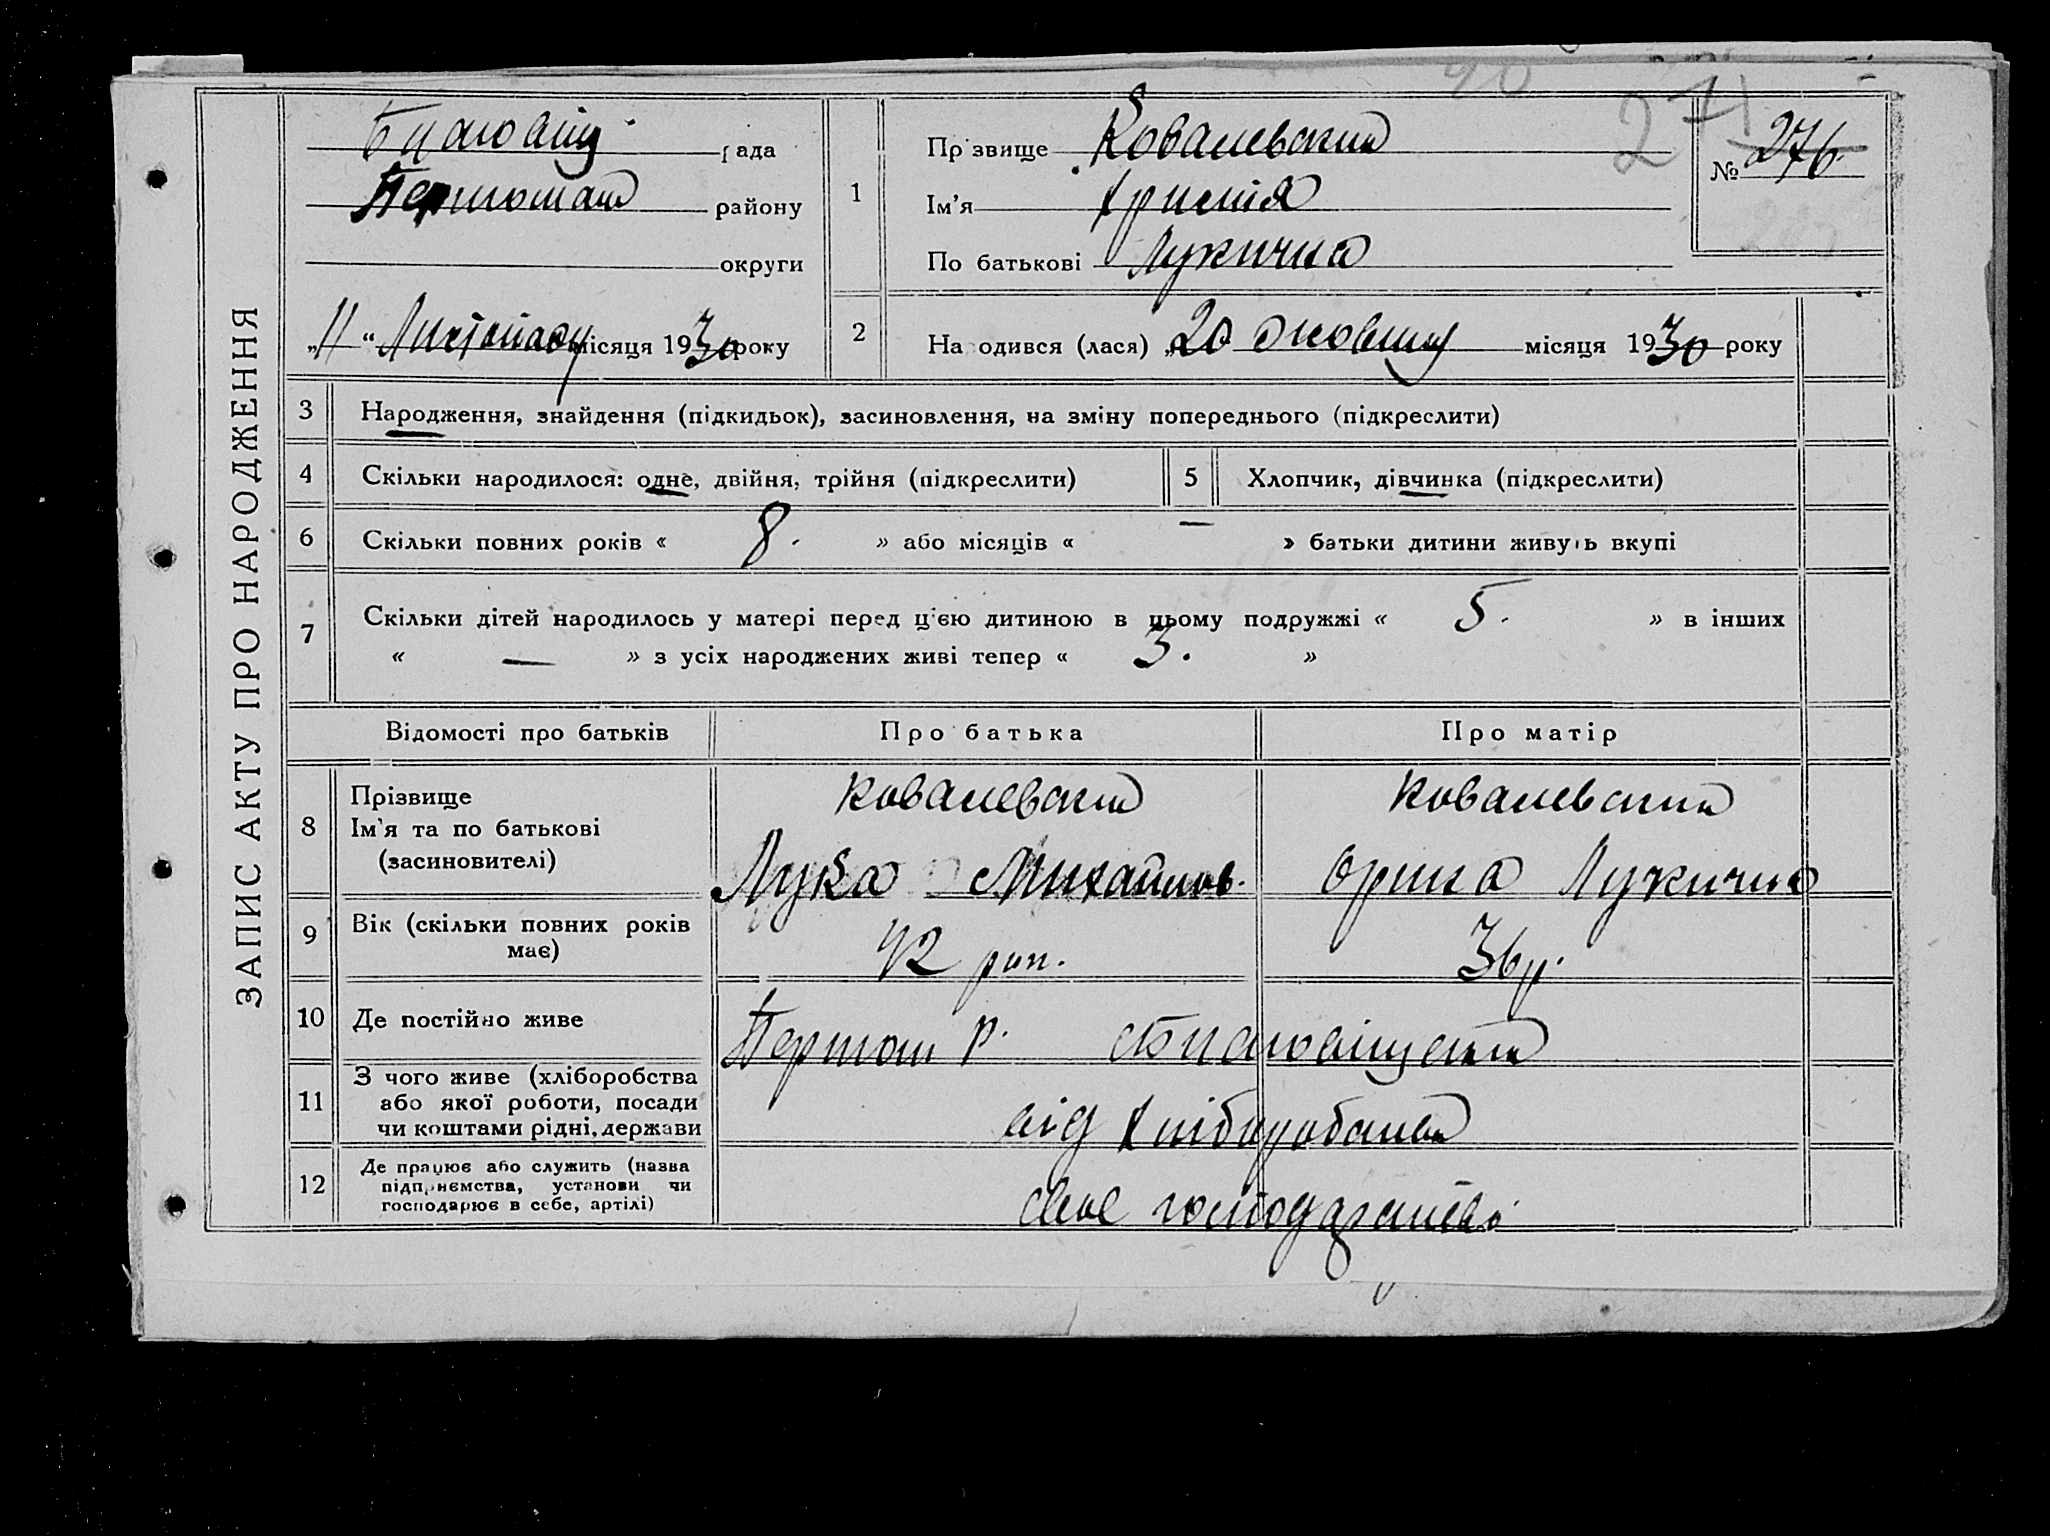 ЗАПИС АКТУ ПРО НАРОДЖЕННЯ
271
рада
району
округи
„11“ Листопаду місяця 1930 року
1
Прізвище Ковалевська
Ім'я Христя
По батькові Лукична
№ 276
2
Народився (лася) „20 жовтня місяця 1930 року
3 Народження, знайдення (підкидьок), засиновлення, на зміну попереднього (підкреслити)
4 Скільки народилося: одне, двійня, трійня (підкреслити)
5 Хлопчик, дівчинка (підкреслити)
6 Скільки повних років « 8. » або місяців « — » батьки дитини живуть вкупі
7 Скільки дітей народилось у матері перед цією дитиною в цьому подружжі « 5. » в інших
« — » з усіх народжених живі тепер « 3. »
Відомості про батьків
Про батька
Про матір
8 Прізвище
Ім'я та по батькові
(засиновителі)
Ковалевська
Лука Михайлов.
Ковалевська
Орина Лукична
9 Вік (скільки повних років
має)
42 рок.
36 р.
10 Де постійно живе
р.
11 З чого живе (хліборобства
або якої роботи, посади
чи коштами рідні, держави
від хліборобства
12 Де працює або служить (назва
підприємства, установи чи
господарює в себе, артілі)
своє господарство